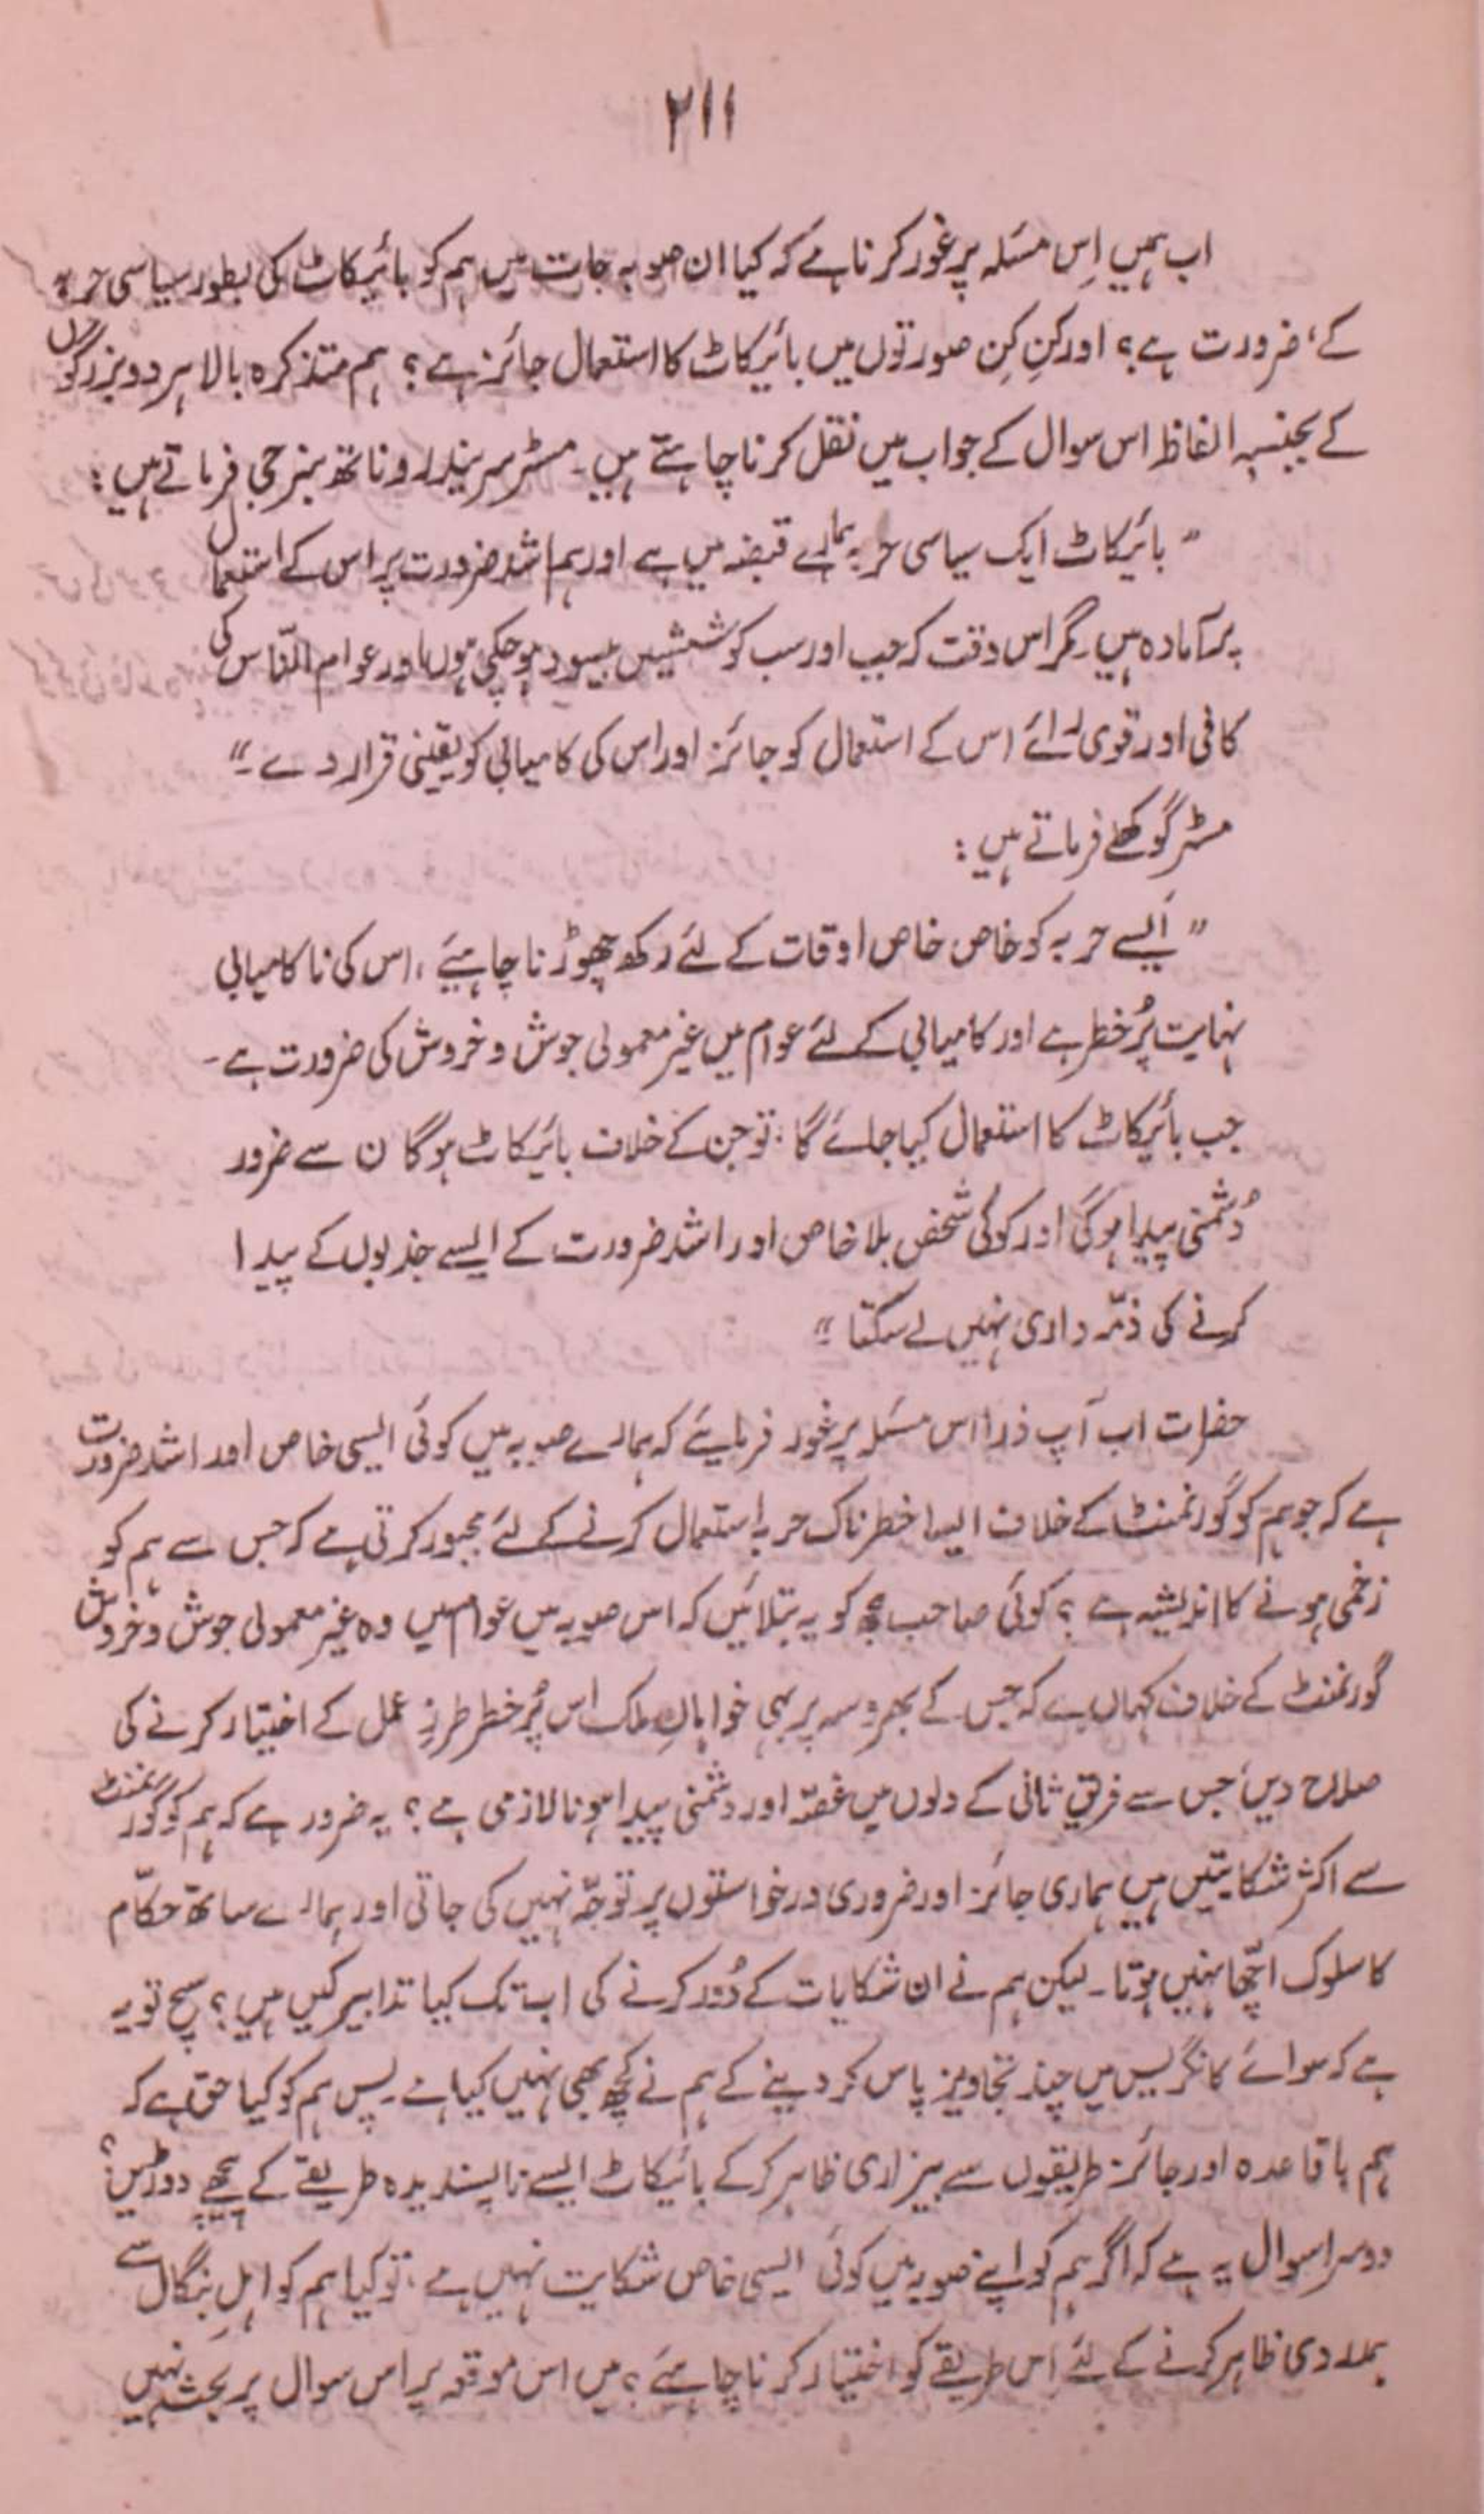 ۲۱۱
اب ہمیں اِس مسَلہ پر غور کرنا ہے کہ کیا ان صوبہ جات میں ہم کو بائیکاٹ کی بطور سیاسی حربہ
کے، ضرورت ہے؟ اور کِن کِن صورتوں میں بائیکاٹ کا استعمال جائز ہے؟ ہم متذکرہ بالا ہر دو بزرگوں
کے بجنسہٖ الفاظ اس سوال کے جواب میں نقل کرنا چاہتے ہیں۔ مسٹر سریندرو ناتھ بنرجی فرماتے ہیں:
"بائیکاٹ ایک سیاسی حربہ ہمارے قبضہ میں ہے اور ہم اشد ضرورت پر اس کے استعمال
پر آمادہ ہیں۔ مگر اس وقت کہ جب اور سب کوششیں بیسود ہو چکی ہوں اور عوام النّاس کی
کافی اور قوی رائے اس کے استعمال کو جائز اور اس کی کامیابی کو یقینی قرار دے۔"
مسٹر گوکھلے فرماتے ہیں:
"ایسے حربہ کو خاص خاص اوقات کے لئے رکھ چھوڑنا چاہیئے، اس کی ناکامیابی
نہایت پُرخطر ہے اور کامیابی کے لئے عوام میں غیر معمولی جوش و خروش کی ضرورت ہے۔
جب بائیکاٹ کا استعمال کیا جائے گا؛ تو جن کے خلاف بائیکاٹ ہوگا ن سے ضرور
دُشمنی پیدا ہوگی اور کوئی شخص بلا خاص اور اشد ضرورت کے ایسے جذبوں کے پیدا
کرنے کی ذمّہ داری نہیں لے سکتا"
حضرات اب آپ ذرا اس مسَلہ پر غور فرمایئے کہ ہمارے صوبہ میں کوئی ایسی خاص اور اشد ضرورت
ہے کہ جو ہم کو گورنمنٹ کے خلاف ایسا خطرناک حربہ استعمال کرنے کے لئے مجبور کرتی ہے کہ جس سے ہم کو
زخمی ہونے کا اندیشہ ہے؟ کوئی صاحب مجھ کو یہ بتلائیں کہ اس صوبہ میں عوام میں وہ غیر معمولی جوش و خروش
گورنمنٹ کے خلاف کہاں ہے کہ جس کے بھروسہ پر بہی خواہانِ ملک اس پُرخطر طرزِ عمل کے اختیار کرنے کی
صلاح دیں، جس سے فریقِ ثانی کے دلوں میں غصّہ اور دشمنی پیدا ہونا لازمی ہے؟ یہ ضرور ہے کہ ہم کو گورنمنٹ
سے اکثر شکایتیں ہیں ہماری جائز اور ضروری درخواستوں پر توجّہ نہیں کی جاتی اور ہمارے ساتھ حکّام
کا سلوک اچّھا نہیں ہوتا۔ لیکن ہم نے ان شکایات کے دُور کرنے کی اب تک کیا تدابیر کیں ہیں؟ سچ تو یہ
ہے کہ سوائے کانگریس میں چند تجاویز پاس کر دینے کے ہم نے کچھ بھی نہیں کیا ہے۔ پس ہم کو کیا حق ہے کہ
ہم باقاعدہ اور جائز طریقوں سے بیزاری ظاہر کرکے بائیکاٹ ایسے ناپسندیدہ طریقے کے پیچھے دوڑیں؟
دوسرا سوال یہ ہے کہ اگر ہم کو اپنے صوبہ میں کوئی ایسی خاص شکایت نہیں ہے؛ تو کیا ہم کو اہلِ بنگال سے
ہمدردی ظاہر کرنے کے لئے اِس طریقے کو اختیار کرنا چاہیئے؟ میں اس موقعہ پر اس سوال پر بحث نہیں